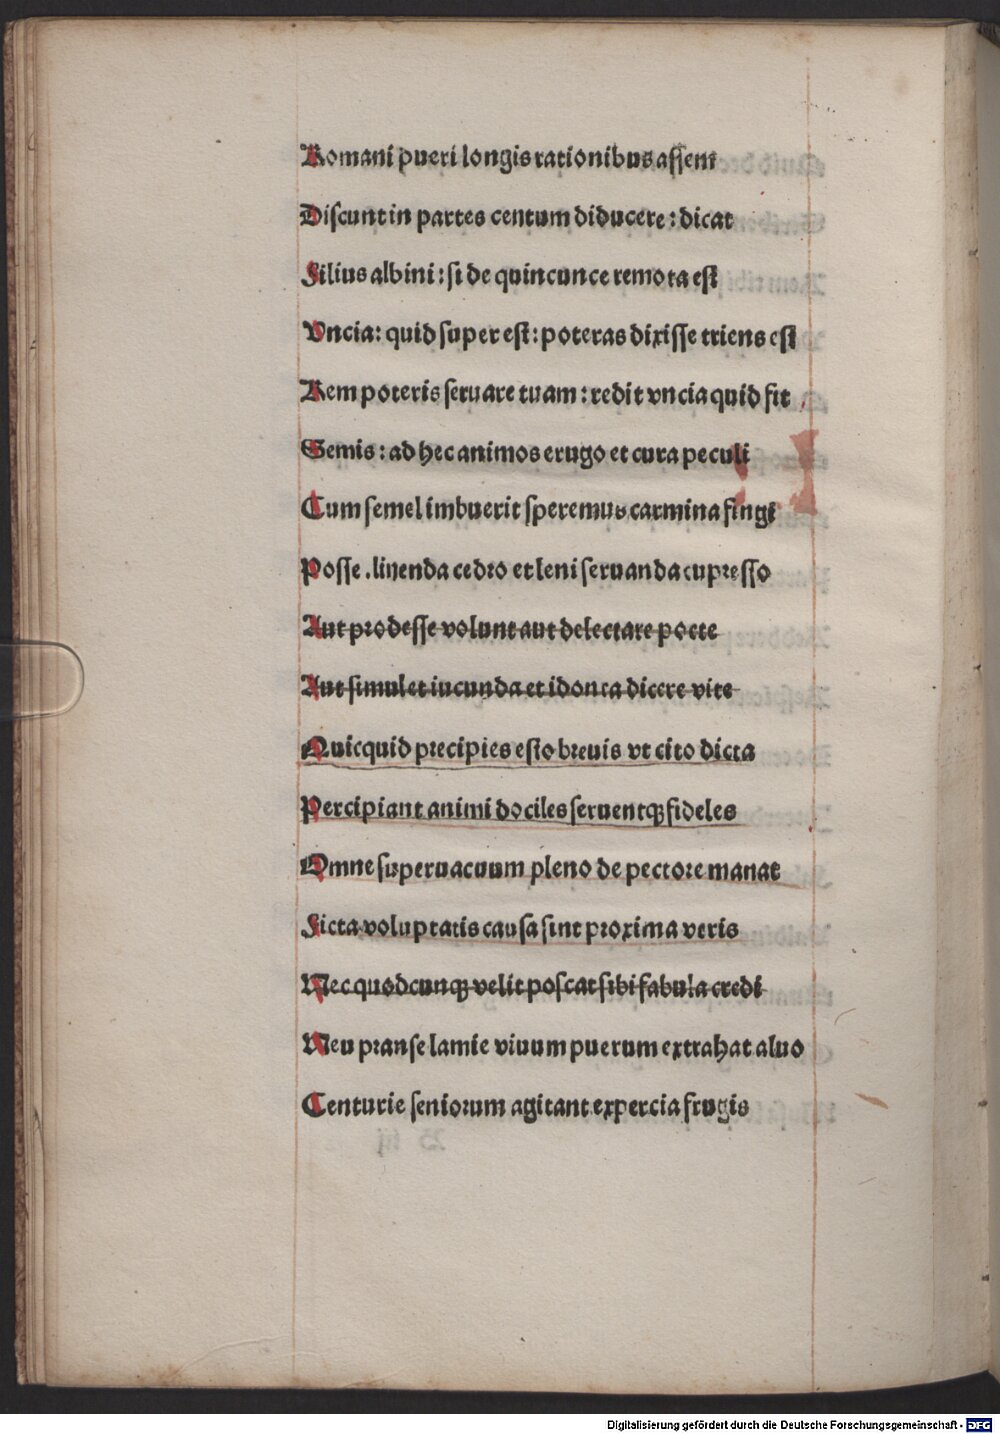 Romani pueri longis rationibus assem
Discunt in partes centum diducere : dicat
Filius albini : si de quincunce remota est
Vncia : quid super est : poteras dixisse triens est
Rem poteris seruare tuam : redit vncia quid fit
Semis : ad hec animos erugo et cura peculi
Cum semel imbuerit speremus carmina fingi
Posse . linenda cedro et leni seruanda cupresso
Aut prodesse volunt aut delectare poete
Aut simul et iucunda et idonea dicere vite
Quicquid precipies esto breuis vt cito dicta
Percipiant animi dociles seruentqꝫ fideles
Omne superuacuum pleno de pectore manat
Ficta voluptatis causa sint proxima veris
Nec quodcunqꝫ velit poscat sibi fabula credi
Neu pranse lamie viuum puerum extrahat aluo
Centurie seniorum agitant expercia frugis
Digitalisierung gefördert durch die Deutsche Forschungsgemeinschaft - DFG